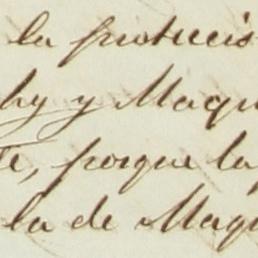 la protecció
hy y Maqu
te, porque la
la de Maqu